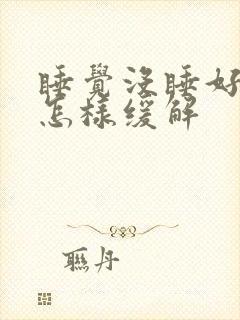 睡覺没睡好
怎樣缓解
聯丹